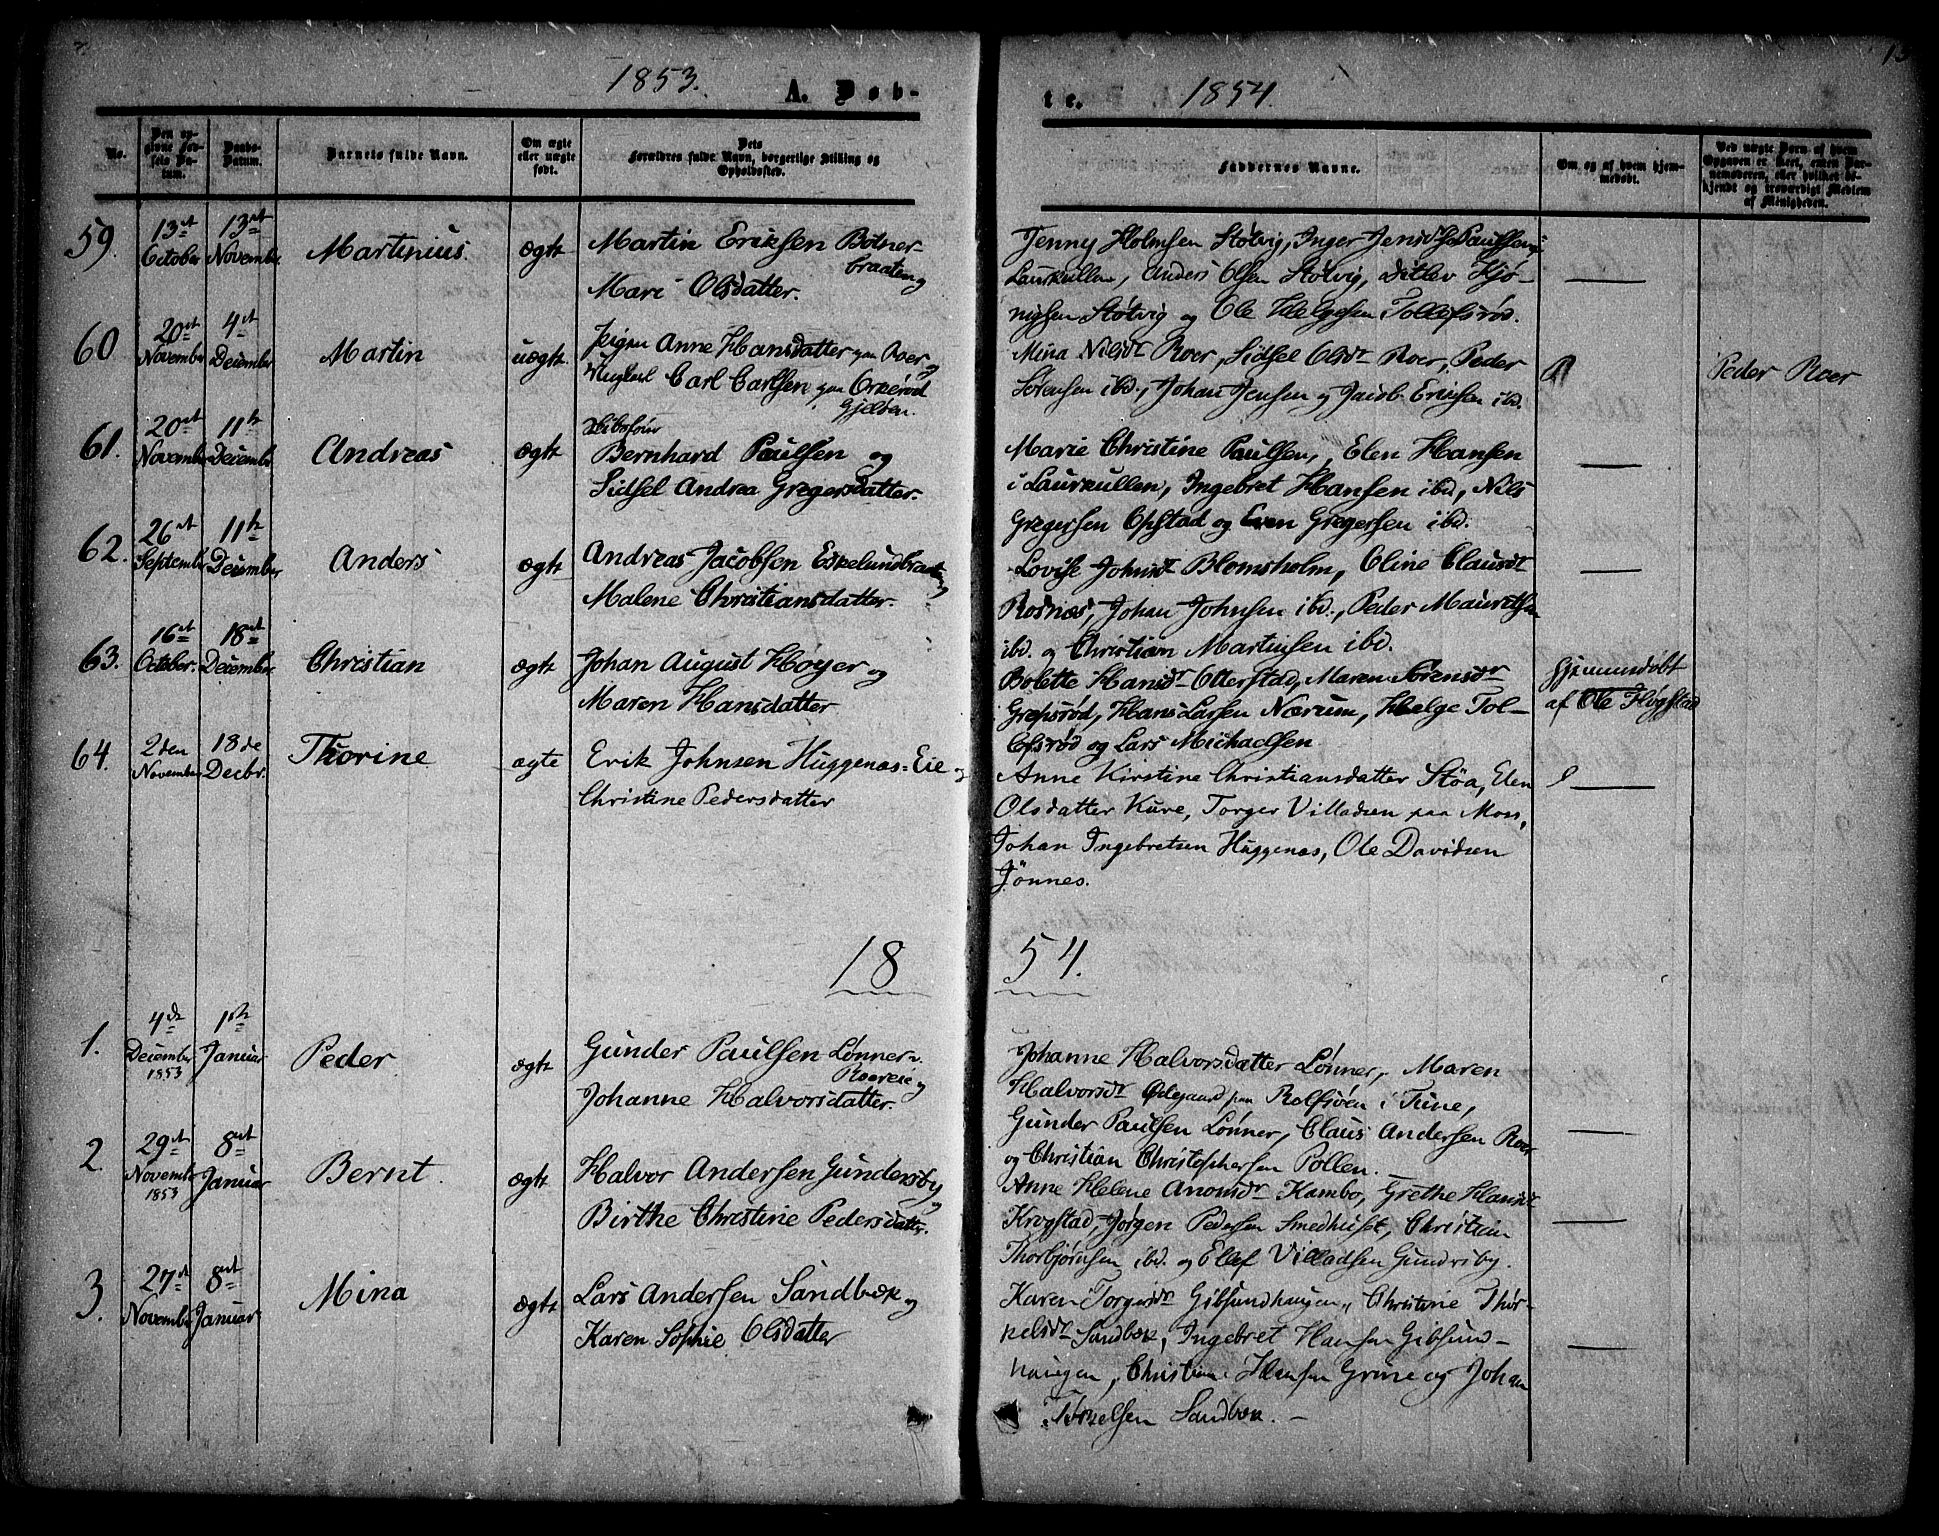 1853. A. Døb-
te. 1854.
13
No.
Den op-
givne Fød-
sels Da-
tum.
Daabs-
Datum.
Barnets fulde Navn.
Om ægte
eller uægte
født.
Dets
Forældres fulde Navn, borgerlige Stilling og
Opholdssted.
Faddernes Navne.
Om og af hvem hjem-
medøbt.
Ved uægte Børn af hvem
Opgaven er skeet, enten Bar-
nemoderen, eller hvilket be-
kjendt og troværdigt Medlem
af Menigheden.
59. 13de October 13de November Martinius. ægte
Martin Eriksen Botner-
braaten og
Mari Olsdatter.
Jenny Holmsen Støtvig, Inger Jensdr Paulsen i
Laurkullen, Anders Olsen Støtvig, Ditlev Kjø-
nigsen Støtvig og Ole Helgesen Tollefsrød.
60 20de November 4de December Martin uægte
Pigen Anne Hansdatter paa Roer og
Ungkarl Carl Carlsen paa Orkerød
Gjeløen.
Mina Nilsdr Roer, Sidsel Olsdr Roer, Peder
Sørensen ibd., Johan Jensen og Jacob Ericsen ibd.
Peder Roer
61. 20de November 11te December Andreas ægte
Bernhard Paulsen og
Sidsel Andrea Gregersdatter.
Marie Christine Paulsen, Elen Hansen
i Laurkullen, Ingebret Hansen ibd, Nils
Gregersen Opstad og Even Gregersen ibd.
62. 26de September 11te December Anders ægte
Andreas Jacobsen Eskelundbraaten og
Malene Christiansdatter.
Lovise Johnsdr Blomsholm, Oline Clausdr
Rosnæs, Johan Johnsen ibd., Peder Mauritsen
ibd. og Christian Martinsen ibd.
63. 16de October. 18de December Christian ægte
Johan August Høyer og
Maren Hansdatter
Bolette Hansdr Otterstad, Maren Sørensdr
Grepsrød, Hans Larsen Nærum, Helge Tol-
lefsrød og Lars Michaelsen.
Hjemmedøbt
af Ole Høgstad
64. 2den November 18de Decbr. Thorine ægte
Erik Johnsen Huggenæs-Eie og
Christine Pedersdatter
Anne Kirstine Christiansdatter Støa, Elen
Olsdatter Kure, Torger Villadsen paa Moss,
Johan Ingebretsen Huggenæs, Ole Davidsen
Jønnes.
18 54.
1. 4de December 1853 1ste Januar Peder ægte
Gunder Paulsen Lønner u.
Roereie og
Johanne Halvorsdatter.
Johanne Halvorsdatter Lønner, Maren
Halvorsdr Ødegaard paa Rolfsøen i Tune,
Gunder Paulsen Lønner, Claus Andersen Roer
og Christian Christophersen Pollen.
2 29de November 1853 8de Januar Bernt. ægte
Halvor Andersen Gundersby og
Birthe Christine Pedersdatter.
Anne Helene Anonsdr Kambo, Grethe Hansdr
Krogstad, Jørgen Pedersen Smedhuset, Christian
Thorbjørnsen ibd. og Ellef Villadsen Gundersby.
3. 27de November 8de Januar Mina ægte
Lars Andersen Sandbæk og
Karen Sophie Olsdatter
Karen Torgersdr Gibsundhaugen, Christine Thor-
kelsdr Sandbæk, Ingebret Hansen Gibsund-
haugen, Christian Hansen Grine og Johan
Torkelsen Sandbæk. —